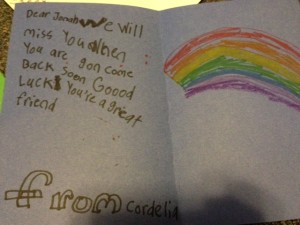 Dear Jonah We Will
Miss You When
You are gon come
Back Soon Goood
Luck You're a great
friend
From Cordelia